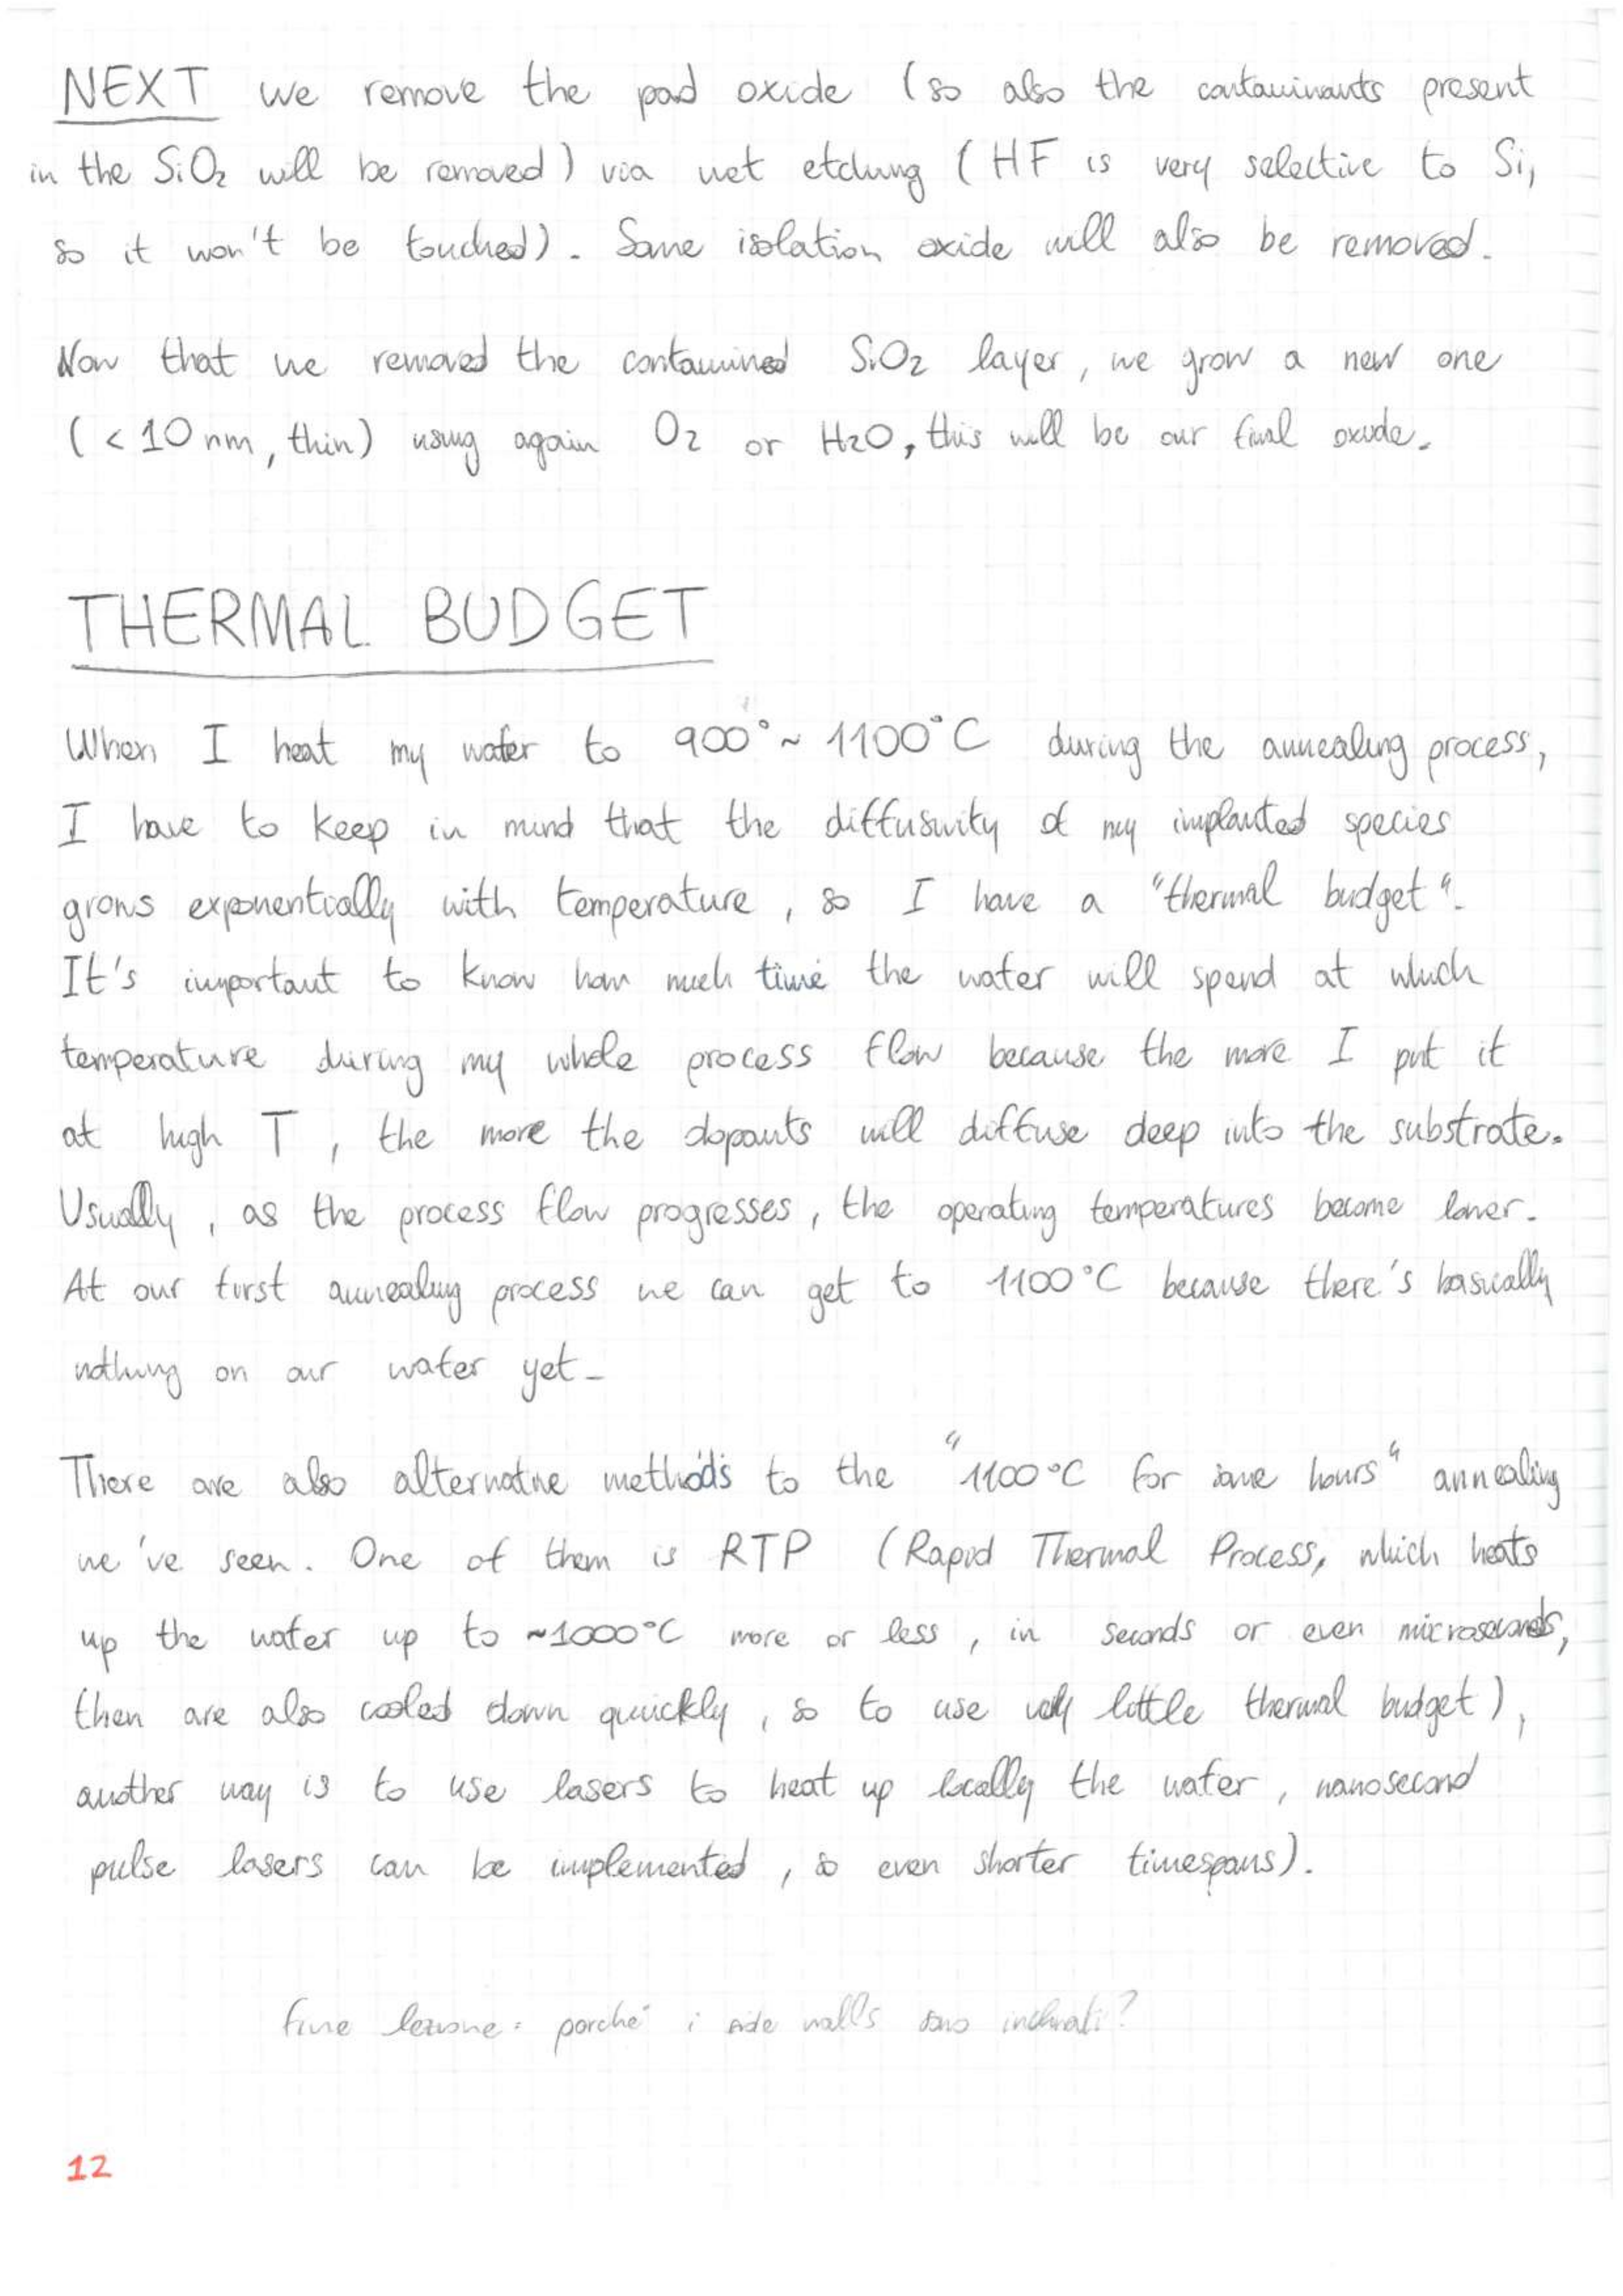 NEXT we remove the pad oxide (so also the contaminants present
in the SiO₂ will be removed) via wet etching (HF is very selective to Si,
so it won't be touched). Some isolation oxide will also be removed.
Now that we removed the contamined SiO₂ layer, we grow a new one
(<10 nm, thin) using again O₂ or H₂O, this will be our final oxide.
THERMAL BUDGET
When I heat my wafer to 900° ~ 1100°C during the annealing process,
I have to keep in mind that the diffusivity of my implanted species
grows exponentially with temperature, so I have a "thermal budget".
It's important to know how much time the wafer will spend at which
temperature during my whole process flow because the more I put it
at high T, the more the dopants will diffuse deep into the substrate.
Usually, as the process flow progresses, the operating temperatures become lower.
At our first annealing process we can get to 1100°C because there's basically
nothing on our wafer yet.
There are also alternative methods to the "1100°C for some hours" annealing
we've seen. One of them is RTP (Rapid Thermal Process, which heats
up the wafer up to ~1000°C more or less, in seconds or even microseconds,
then are also cooled down quickly, so to use very little thermal budget),
another way is to use lasers to heat up locally the wafer, nanosecond
pulse lasers can be implemented, so even shorter timespans).
fine lezione: perché i side walls sono inclinati?
12